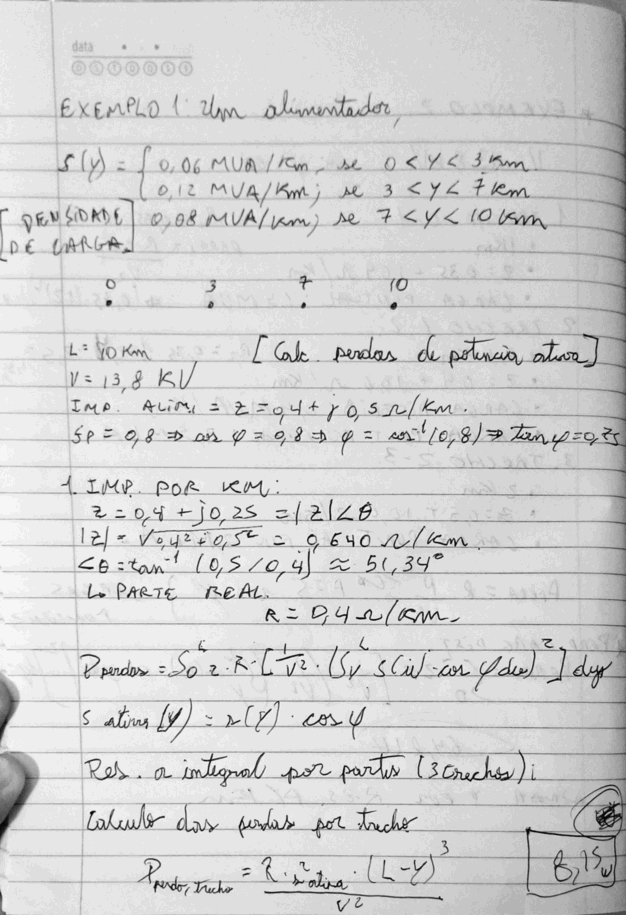 data
EXEMPLO 1: Um alimentador,
S(y) = { 0,06 MVA/Km, se 0 < y < 3 Km
0,12 MVA/Km; se 3 < y < 7 km
[DENSIDADE 0,08 MVA/km; se 7 < y < 10 km
DE CARGA]
0 3 7 10
L = 10 km [Calc. perdas de potencia ativa]
V = 13,8 KV
IMP. ALIM. = z = 0,4 + j 0,5 Ω/km.
fp = 0,8 ⇒ cos φ = 0,8 ⇒ φ = cos⁻¹(0,8) ⇒ tan φ = 0,75
1. IMP. POR KM:
z = 0,4 + j0,25 = |z|∠θ
|z| = √0,4² + 0,5² = 0,640 Ω/km.
∠θ = tan⁻¹ (0,5/0,4) ≈ 51,34°
↳ PARTE REAL.
R = 0,4 Ω/km.
P perdas = ∫₀ᴸ z · R · [1/V² · (∫yᴸ s(u) · cos φ du)²] dy
S ativa (y) = s(y) · cos φ
Res. a integral por partes (3 trechos);
Calculo das perdas por trecho
P perda, trecho = R · s² ativa · (L-y)³ / V²
8,15 w